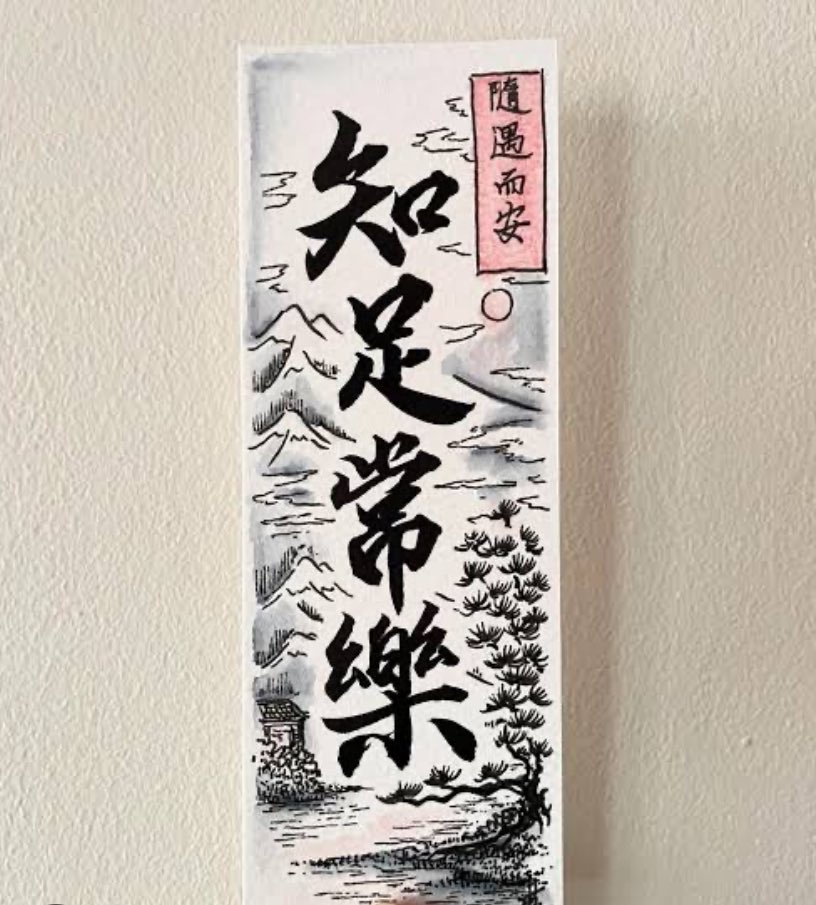 隨遇而安
知足常樂